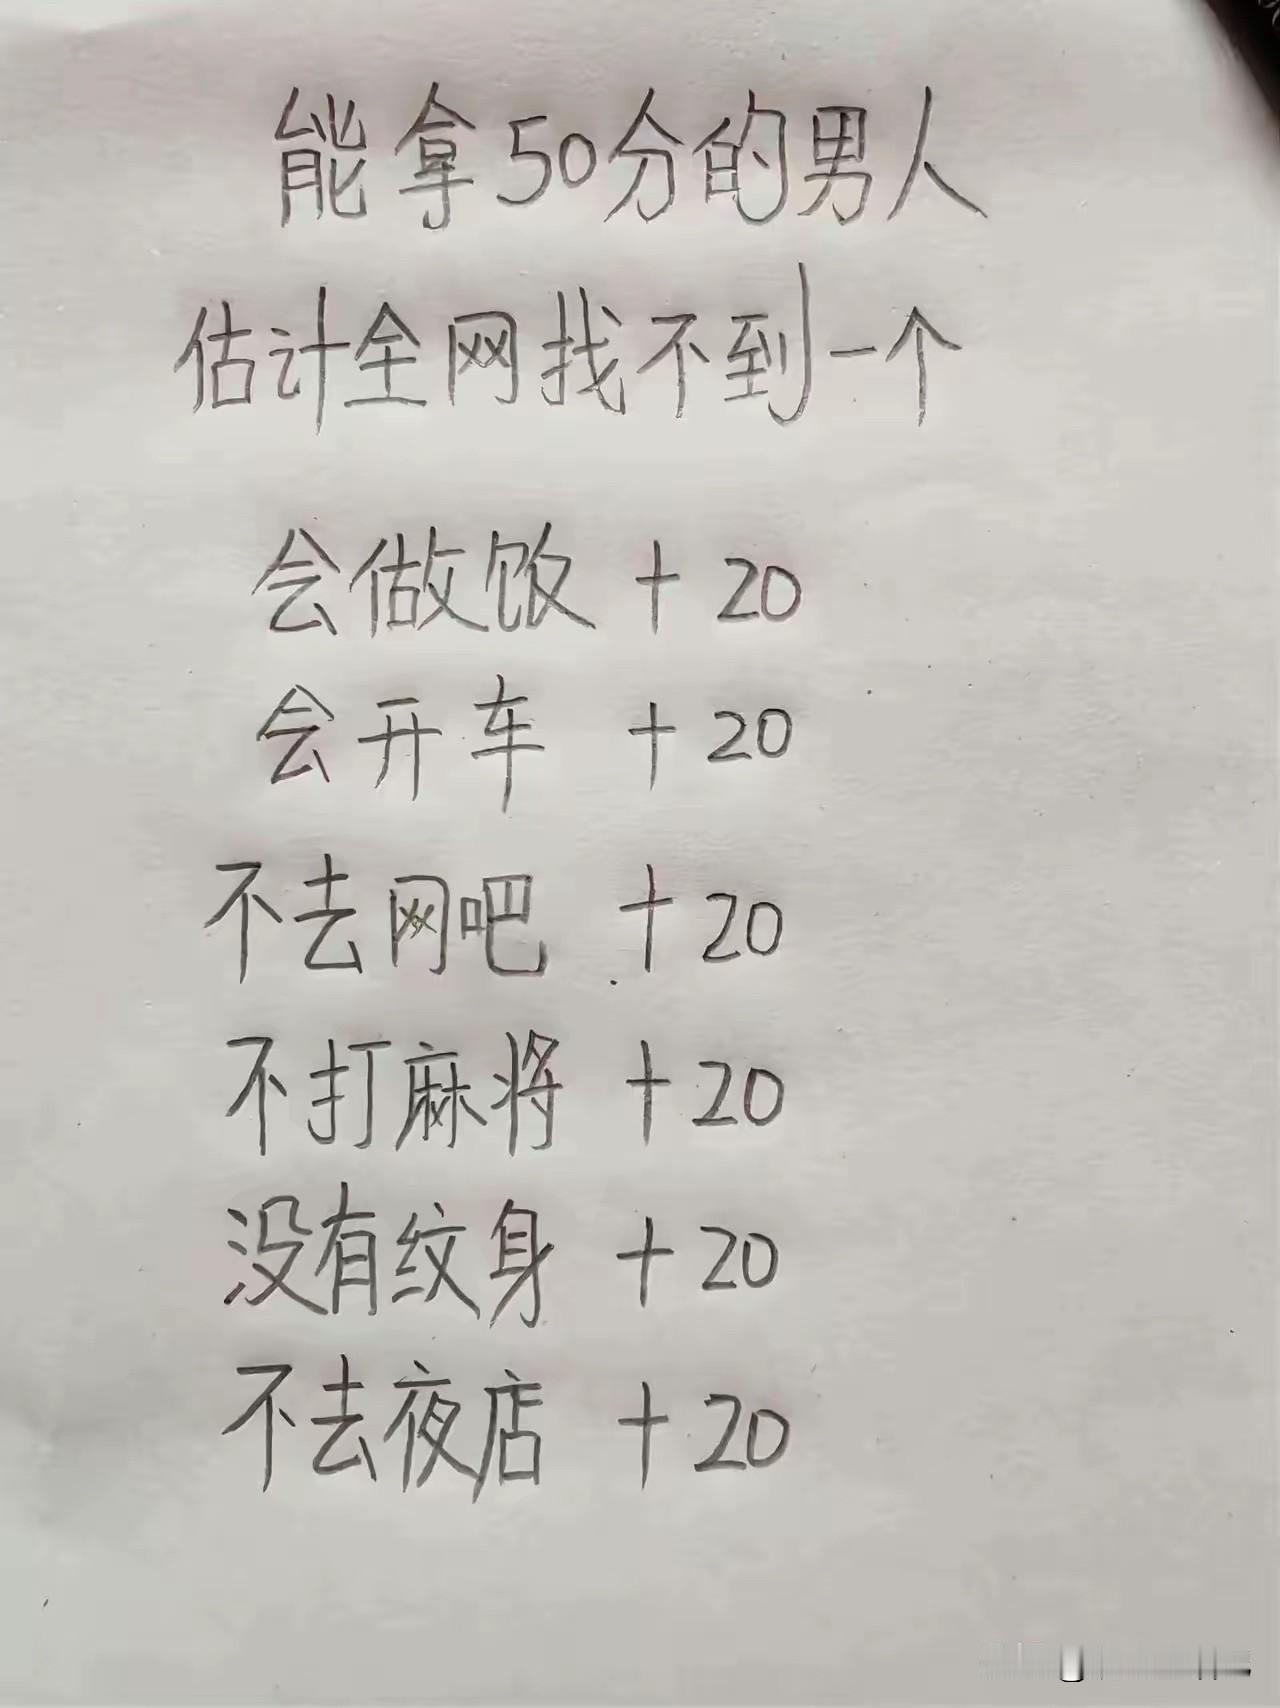 能拿50分的男人
估计全网找不到一个
会做饭 + 20
会开车 + 20
不去网吧 + 20
不打麻将 + 20
没有纹身 + 20
不去夜店 + 20